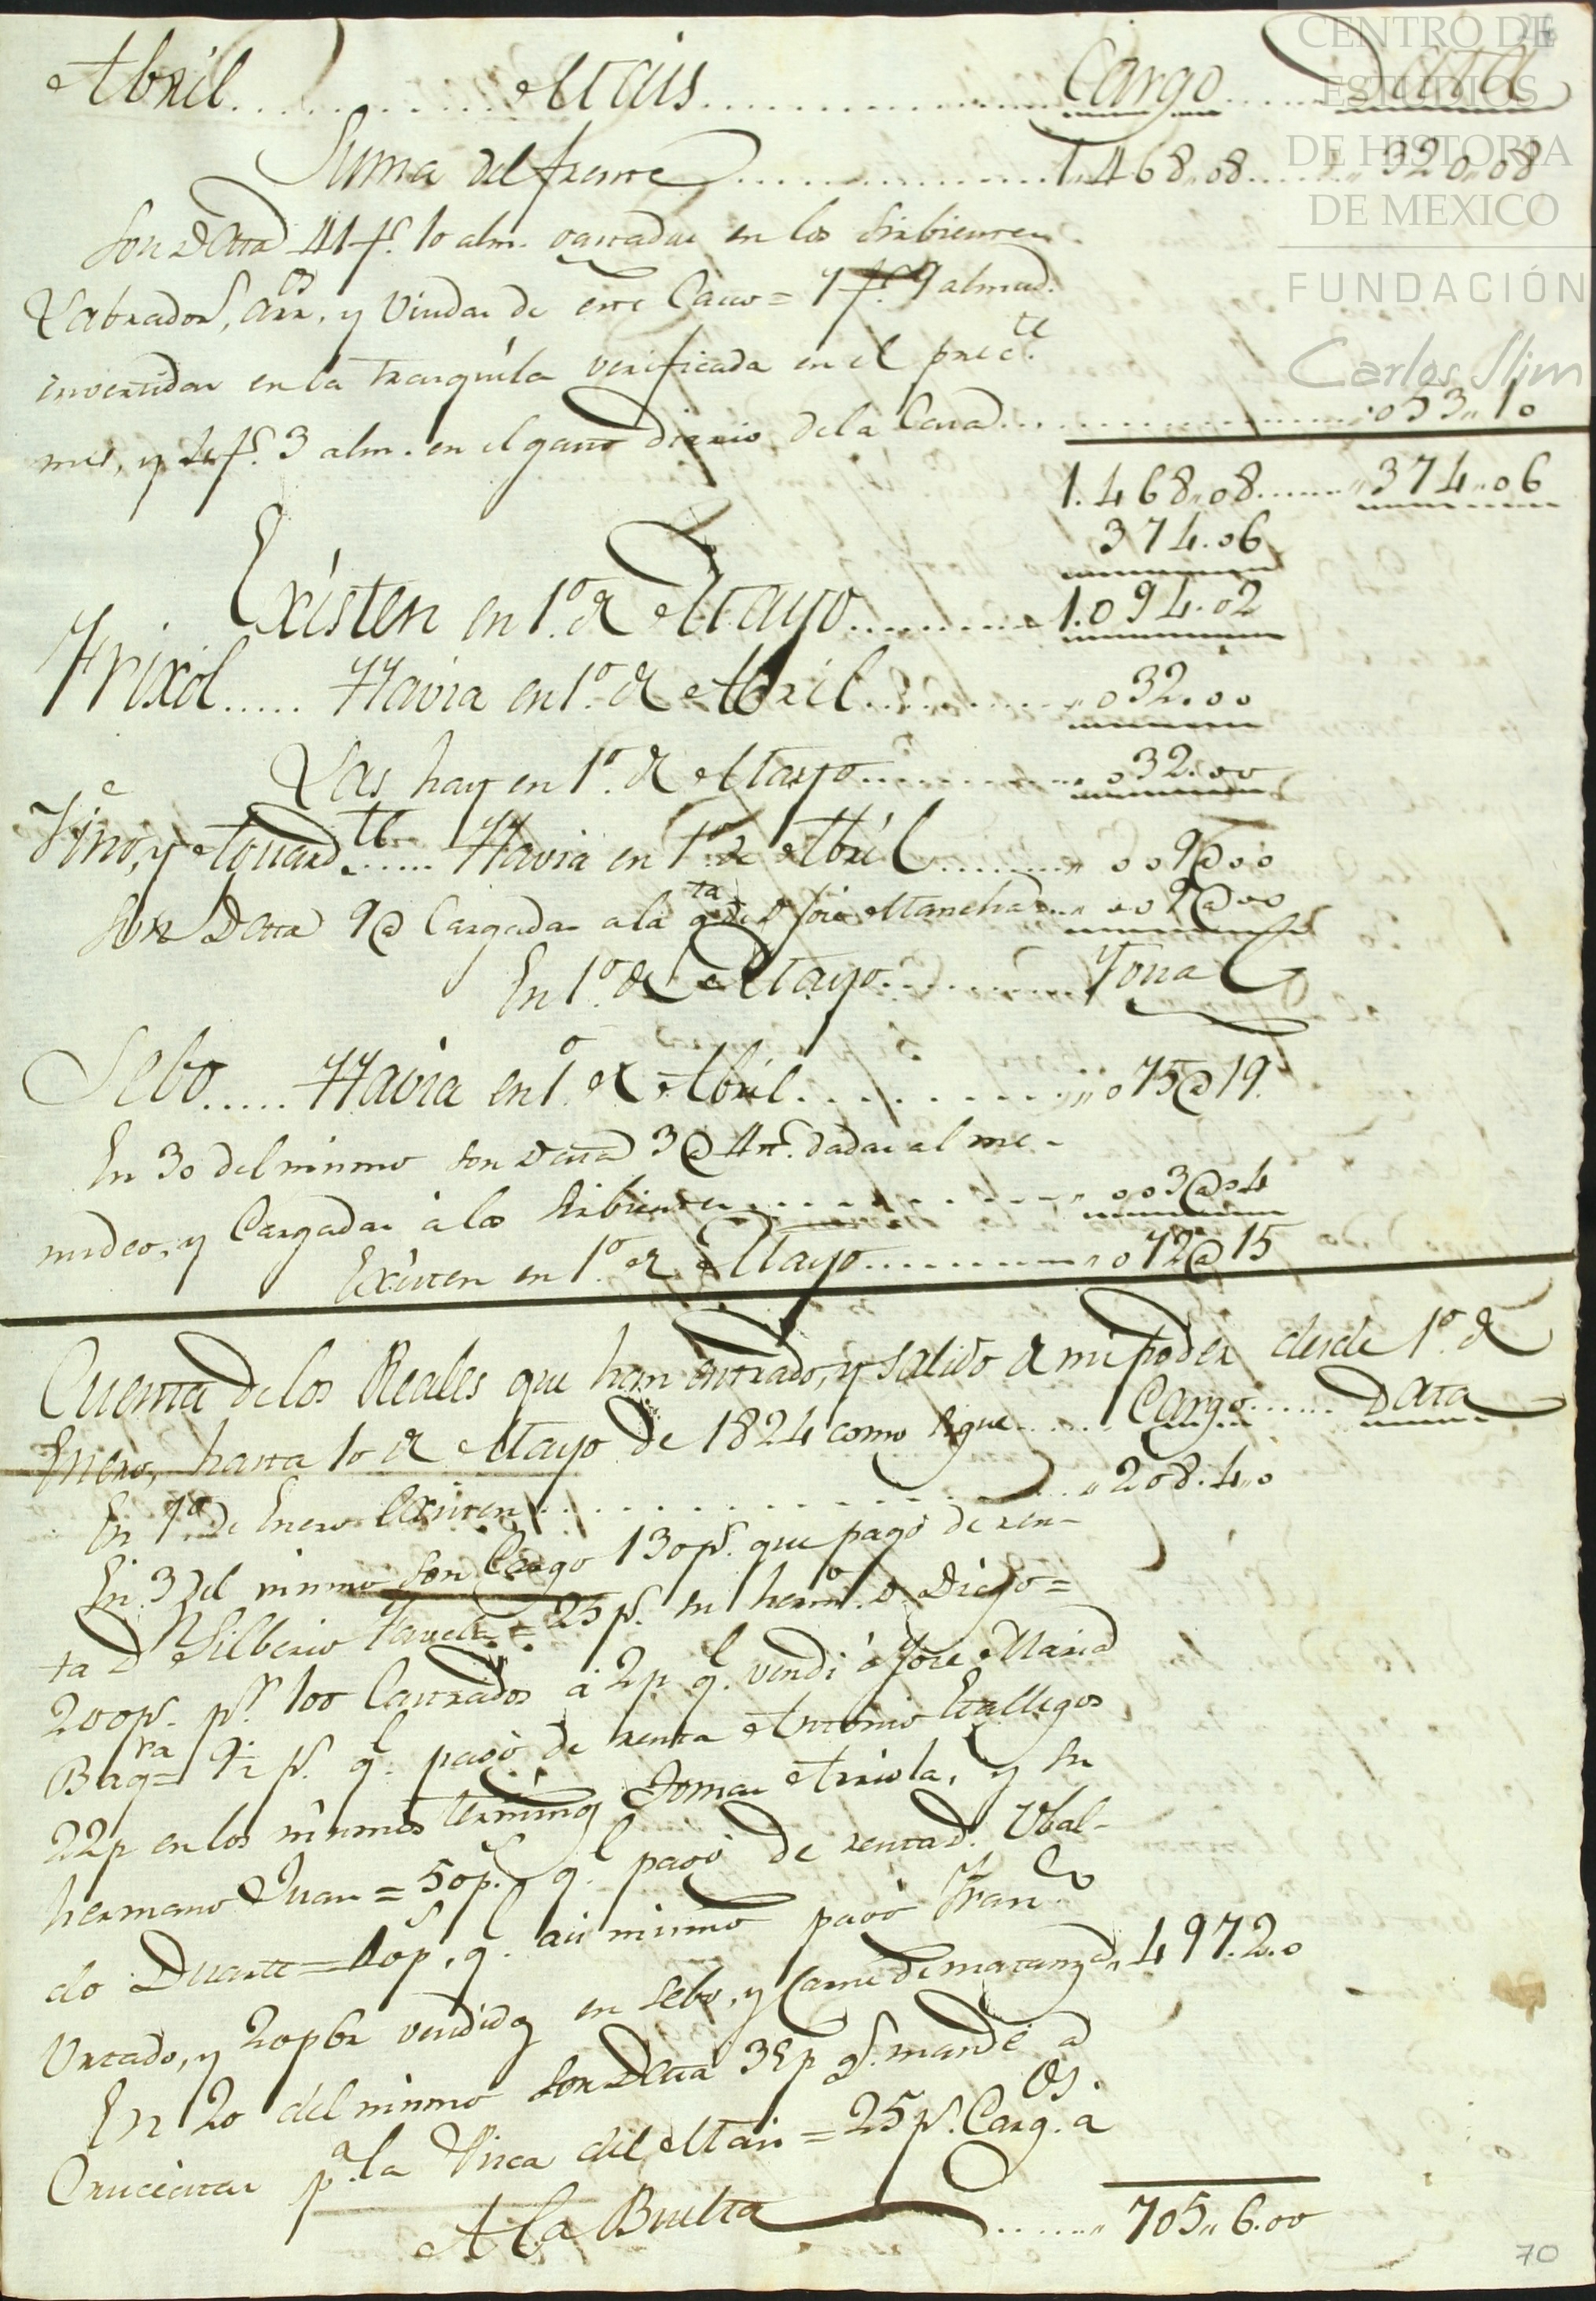 Abril............Mais...................Cargo......Data
Suma del frente...................1.468,,08......,,320,,08
Son Data 41 f.s 10 alm. gastadas en los Sirbientes
Labrador.s, Arr.os, y Viudas de este Casco = 7 f.s 9 almud.
invertidas en la trasquila verificada en el pres.te
mes, y 4 f.s 3 alm. en el gasto diario de la Casa.......053,,10
1.468,,08......,,374,,06
374.06
Existen en 1.o de Mayo..........1.094.02
Frixol..... Havia en 1.o de Abril..........,,032.00
Las hay en 1.o de Mayo..........,,032.00
Vino, y Aguard.te..... Havia en 1.o de Abril........,,009@00
Son Data 9@ Cargadas a la q.ta de D. José Mancha...,,009@00
En 1.o de Mayo...........Ygual
Sebo..... Havia en 1.o de Abril..........,,075@19.
En 30 del mismo son Data 3@ 4 tt.s dadas al me-
nudeo, y Cargadas á los Sirbientes..........,,003@04
Existen en 1.o de Mayo..........,,072@15
Cuenta de los Reales que han entrado, y salido de mi poder desde 1.o de
Enero, hasta 10 de Mayo de 1824 como sigue......Cargo......Data
En 1.o de Enero Existen..........,,208.4,,0
En 3 del mismo son Cargo 130 p.s que pagó de ren-
ta D.n Silberio = 25 p.s su herm.o D. Diego =
200 p.s p.r 100 Castrados á 2 p q.e vendi á José Maria
Bag = p.s q.e pagó de renta Antonio Gallegos
22 p en los mismos terminos Tomas Arriola, y su
hermano Juan = 50 p.s q.e pagó de renta D. Ubal-
do Duarte = 40 p.s, q.e asi mismo pagó Fran.co
Urtado, y 20 p 6 r vendidos en sebo, y Carne de matanza,,497.2.0
En 20 del mismo son Data 35 p q.e mandé a
Crucecitas p.a la Pisca del Mais = 25 p.s Carg.os a
A la Buelta..........,,705,,6.00
70
CENTRO DE
ESTUDIOS
DE HISTORIA
DE MEXICO
FUNDACIÓN
Carlos Slim